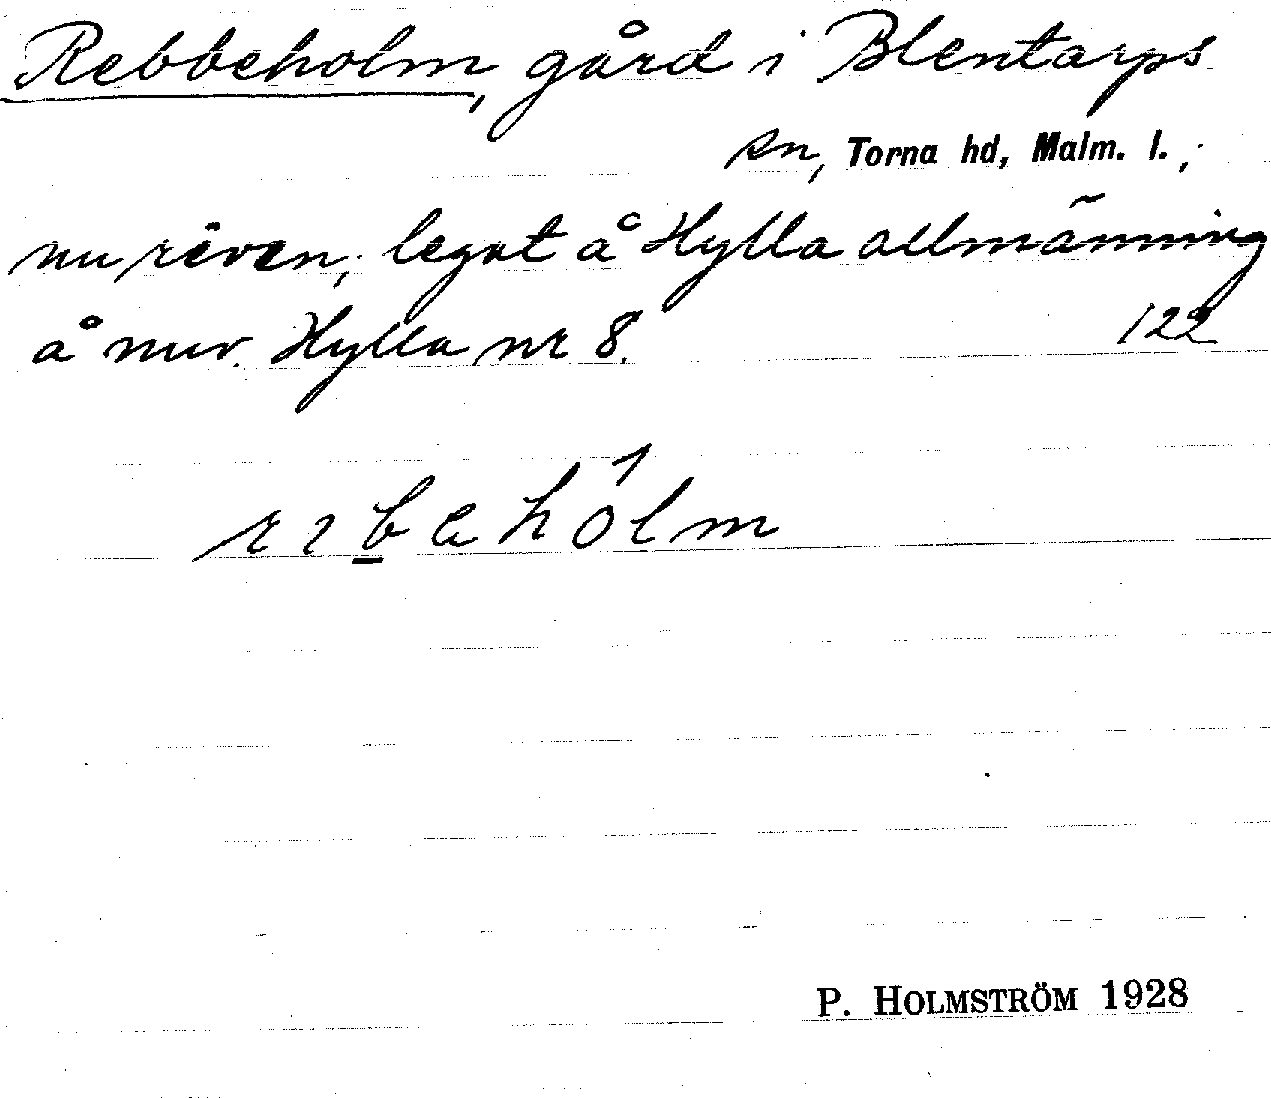 Rebbeholm, gård i Blentarps
sn, Torna hd, Malm. l.,
nu riven, legat å Hylla allmänning
å nuv. Hylla nr 8. 122
P. HOLMSTRÖM 1928